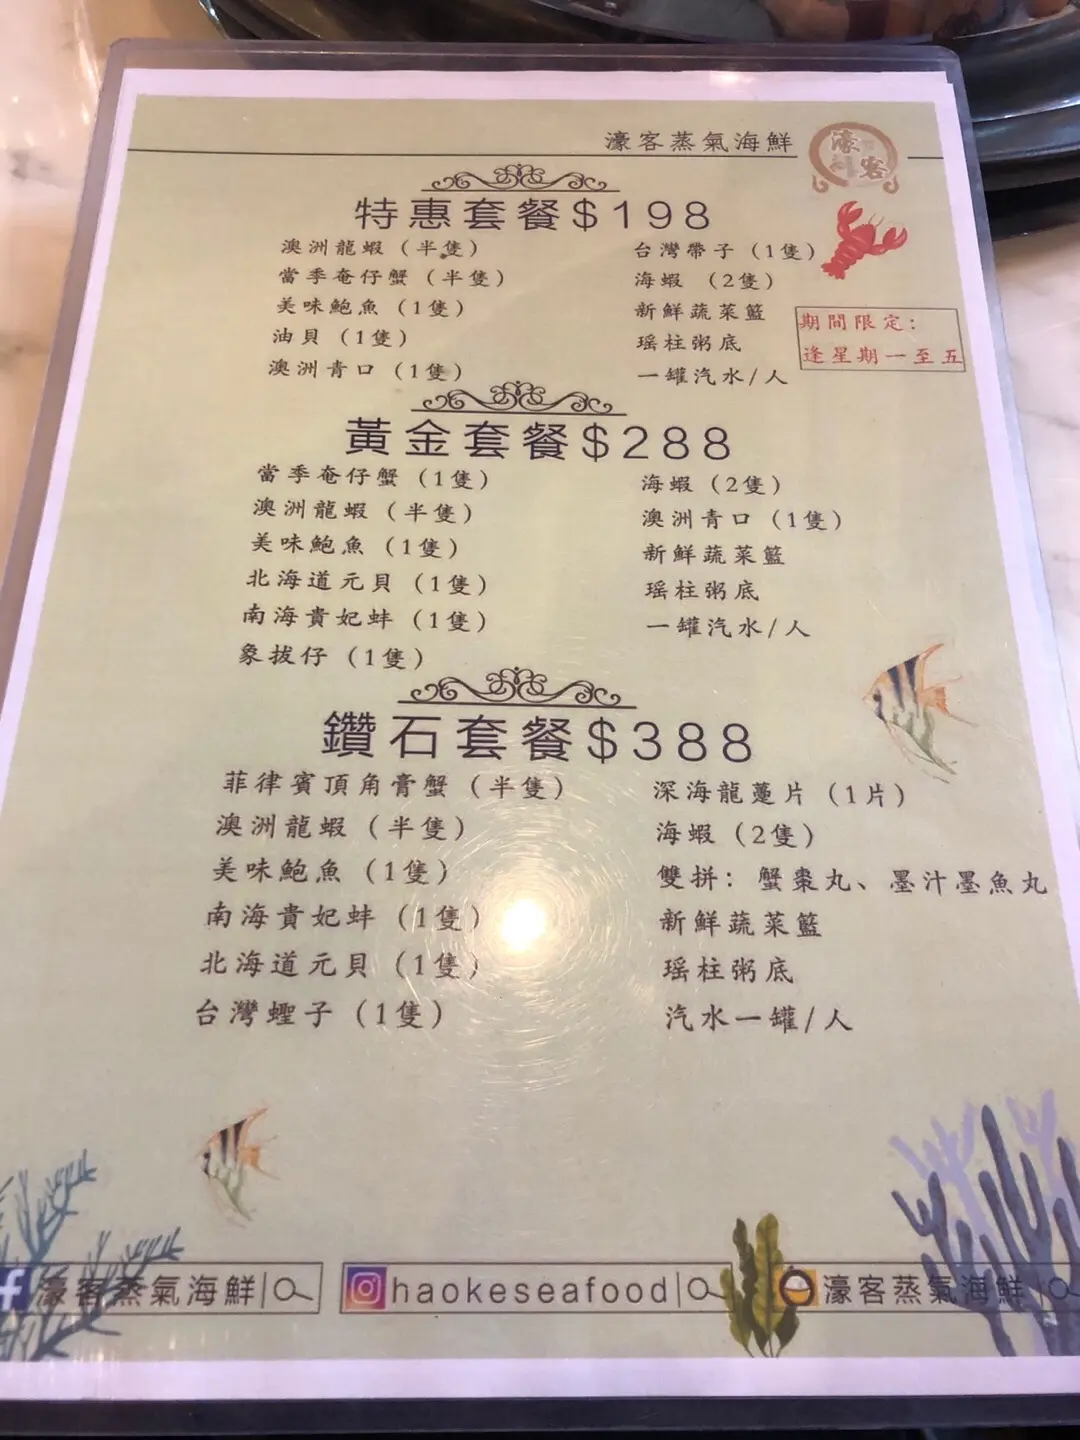 濠客蒸氣海鮮
濠客
特惠套餐$198
澳洲龍蝦（半隻）
當季奄仔蟹（半隻）
美味鮑魚（1隻）
油貝（1隻）
澳洲青口（1隻）
台灣帶子（1隻）
海蝦（2隻）
新鮮蔬菜籃
瑶柱粥底
一罐汽水/人
期間限定：
逢星期一至五
黃金套餐$288
當季奄仔蟹（1隻）
澳洲龍蝦（半隻）
美味鮑魚（1隻）
北海道元貝（1隻）
南海貴妃蚌（1隻）
象拔仔（1隻）
海蝦（2隻）
澳洲青口（1隻）
新鮮蔬菜籃
瑶柱粥底
一罐汽水/人
鑽石套餐$388
菲律賓頂角膏蟹（半隻）
澳洲龍蝦（半隻）
美味鮑魚（1隻）
南海貴妃蚌（1隻）
北海道元貝（1隻）
台灣蟶子（1隻）
深海龍躉片（1片）
海蝦（2隻）
雙拼：蟹棗丸、墨汁墨魚丸
新鮮蔬菜籃
瑶柱粥底
汽水一罐/人
濠客蒸氣海鮮
haokeseafood
濠客蒸氣海鮮